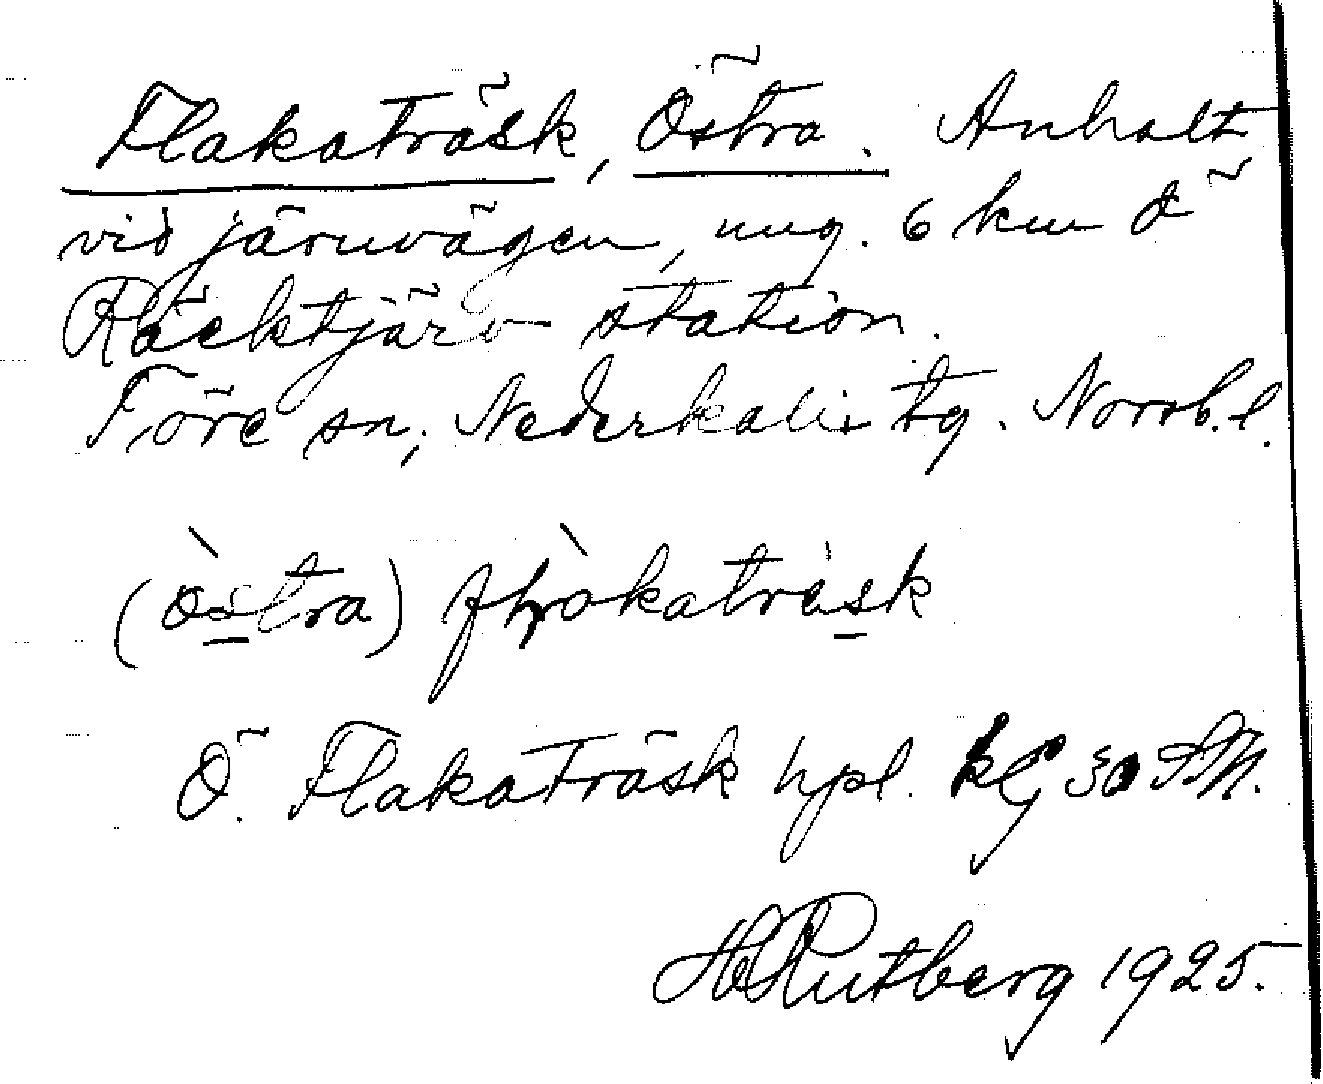 Flakaträsk, Östra. Anhalt
vid järnvägen, ung. 6 km Ö
Räcktjärv station.
Töre sn, Nederkalix tg. Norrb.l.
(òstra) flòkaträsk
Ö. Flakaträsk hpl. 30 SM.
H Rutberg 1925.